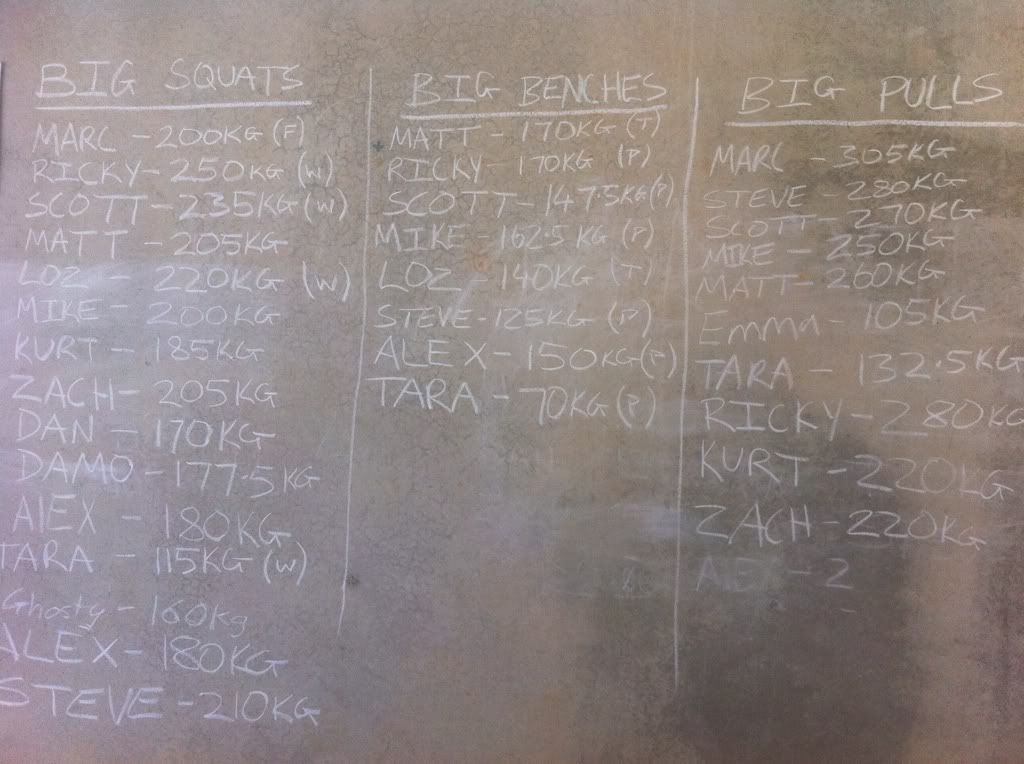 BIG SQUATS
MARC - 200KG (F)
RICKY - 250KG (W)
SCOTT - 235KG (W)
MATT - 205KG
LOZ - 220KG (W)
MIKE - 200KG
KURT - 185KG
ZACH - 205KG
DAN - 170KG
DAMO - 177.5KG
AlEX - 180KG
TARA - 115KG (W)
Ghosty - 160kg
ALEX - 180KG
STEVE - 210KG
BIG BENCHES
MATT - 170KG (T)
RICKY - 170KG (P)
SCOTT - 147.5KG (P)
MIKE - 162.5KG (P)
LOZ - 140KG (T)
STEVE - 125KG (P)
ALEX - 150KG (T)
TARA - 70KG (P)
BIG PULLS
MARC - 305KG
STEVE - 280KG
SCOTT - 270KG
MIKE - 250KG
MATT - 260KG
Emma - 105KG
TARA - 132.5KG
RICKY - 280KG
KURT - 220KG
ZACH - 220KG
AlEX - 2